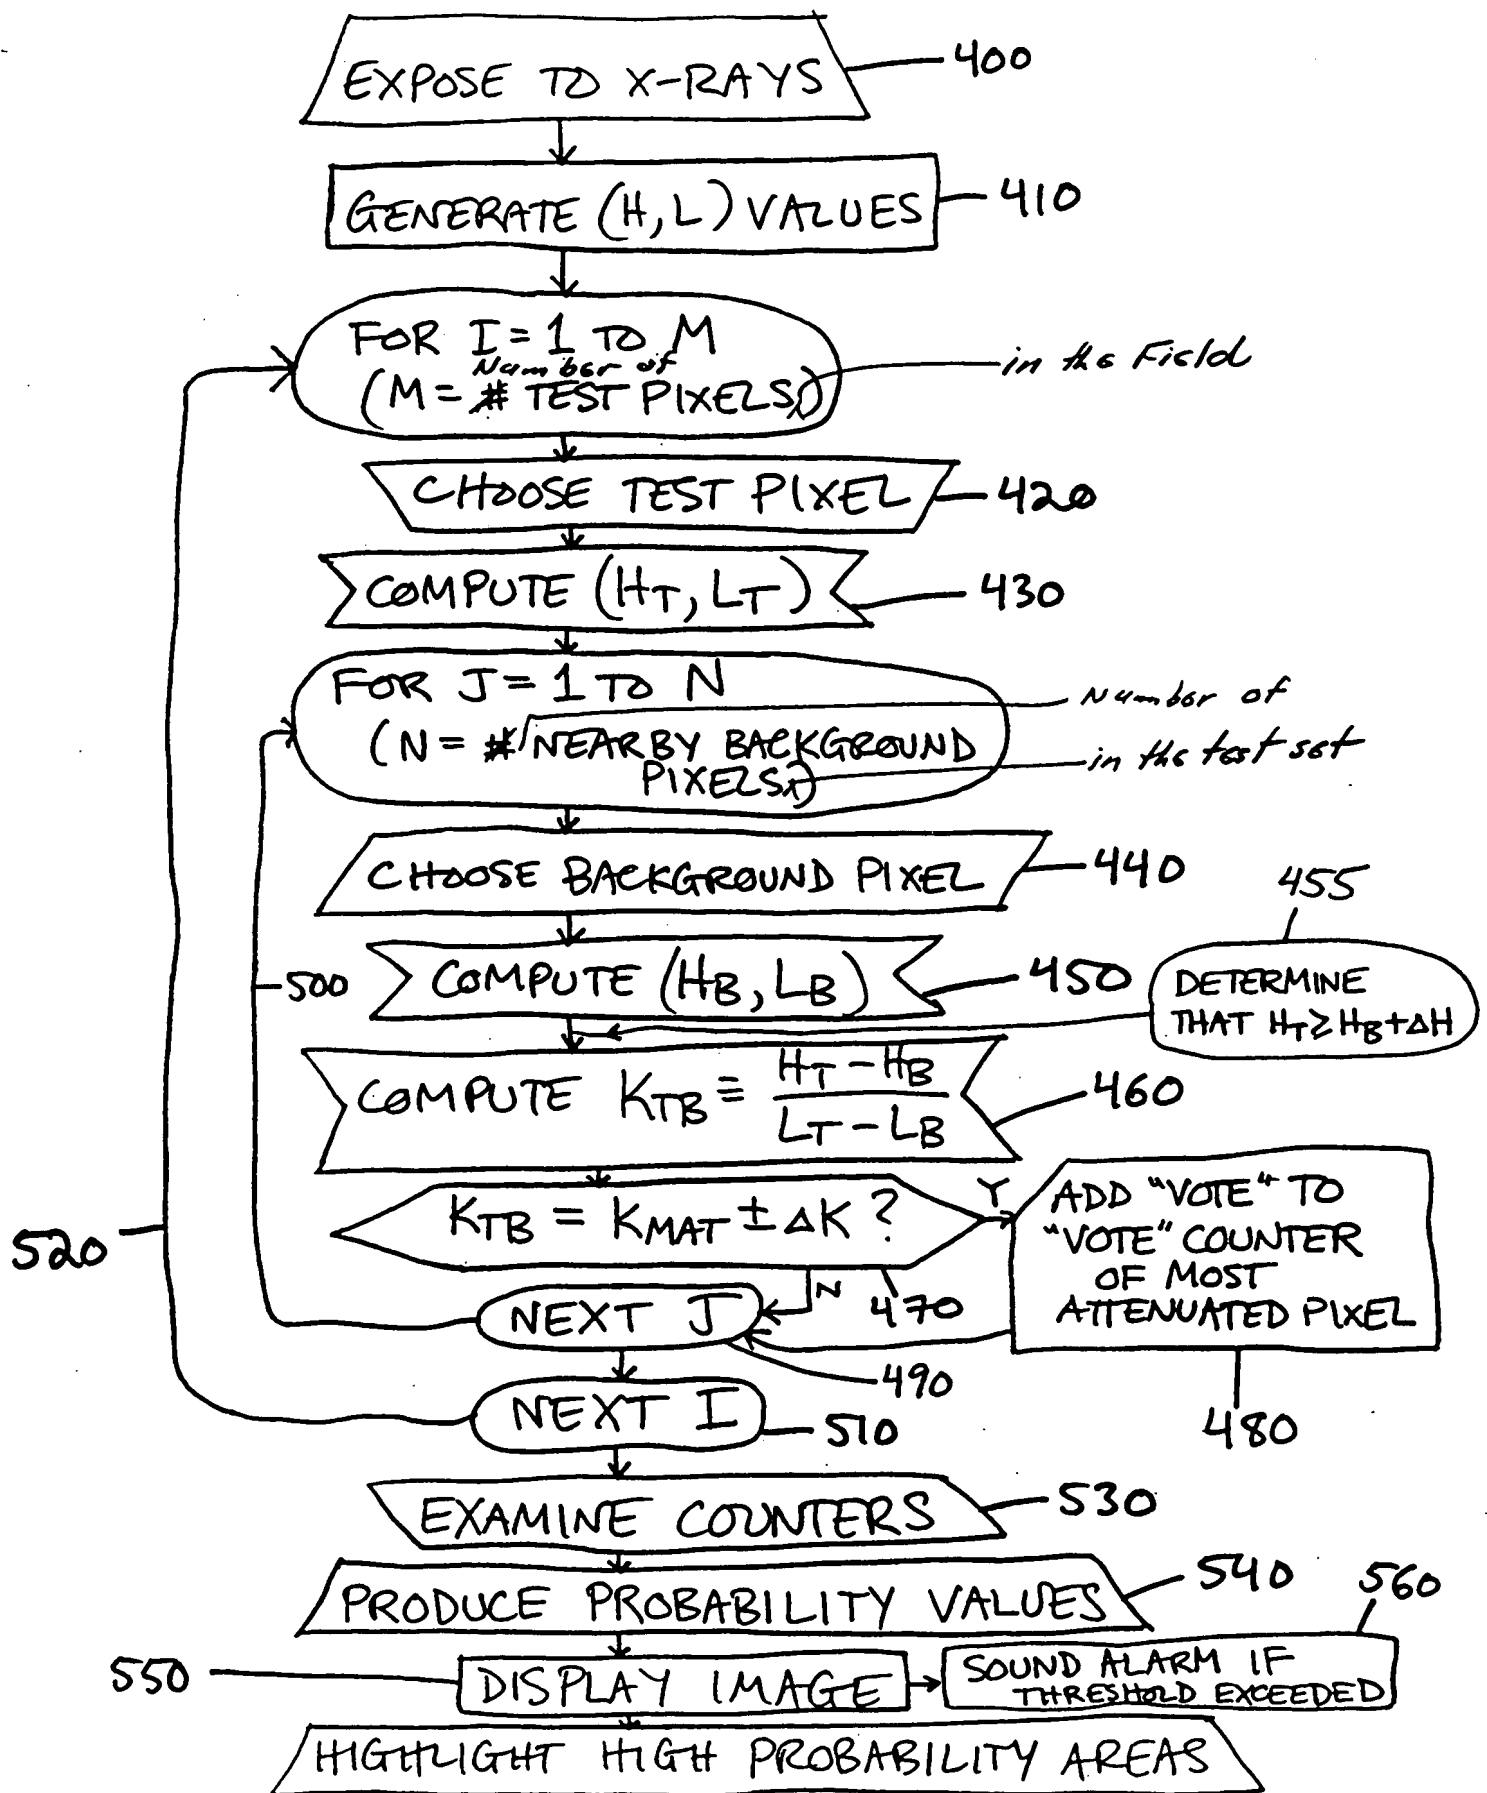 EXPOSE TO X-RAYS
400
GENERATE (H, L) VALUES
410
FOR I = 1 TO M
Number of
(M = # TEST PIXELS)
in the Field
CHOOSE TEST PIXEL
420
COMPUTE (HT, LT)
430
FOR J = 1 TO N
Number of
(N = # NEARBY BACKGROUND
PIXELS)
in the test set
CHOOSE BACKGROUND PIXEL
440
455
500
COMPUTE (HB, LB)
450
DETERMINE
THAT HT ≥ HB + ΔH
COMPUTE KTB ≡ HT - HB / LT - LB
460
KTB = KMAT ± ΔK ?
Y
N
470
ADD "VOTE" TO
"VOTE" COUNTER
OF MOST
ATTENUATED PIXEL
480
520
NEXT J
490
NEXT I
510
EXAMINE COUNTERS
530
PRODUCE PROBABILITY VALUES
540
560
550
DISPLAY IMAGE
SOUND ALARM IF
THRESHOLD EXCEEDED
HIGHLIGHT HIGH PROBABILITY AREAS